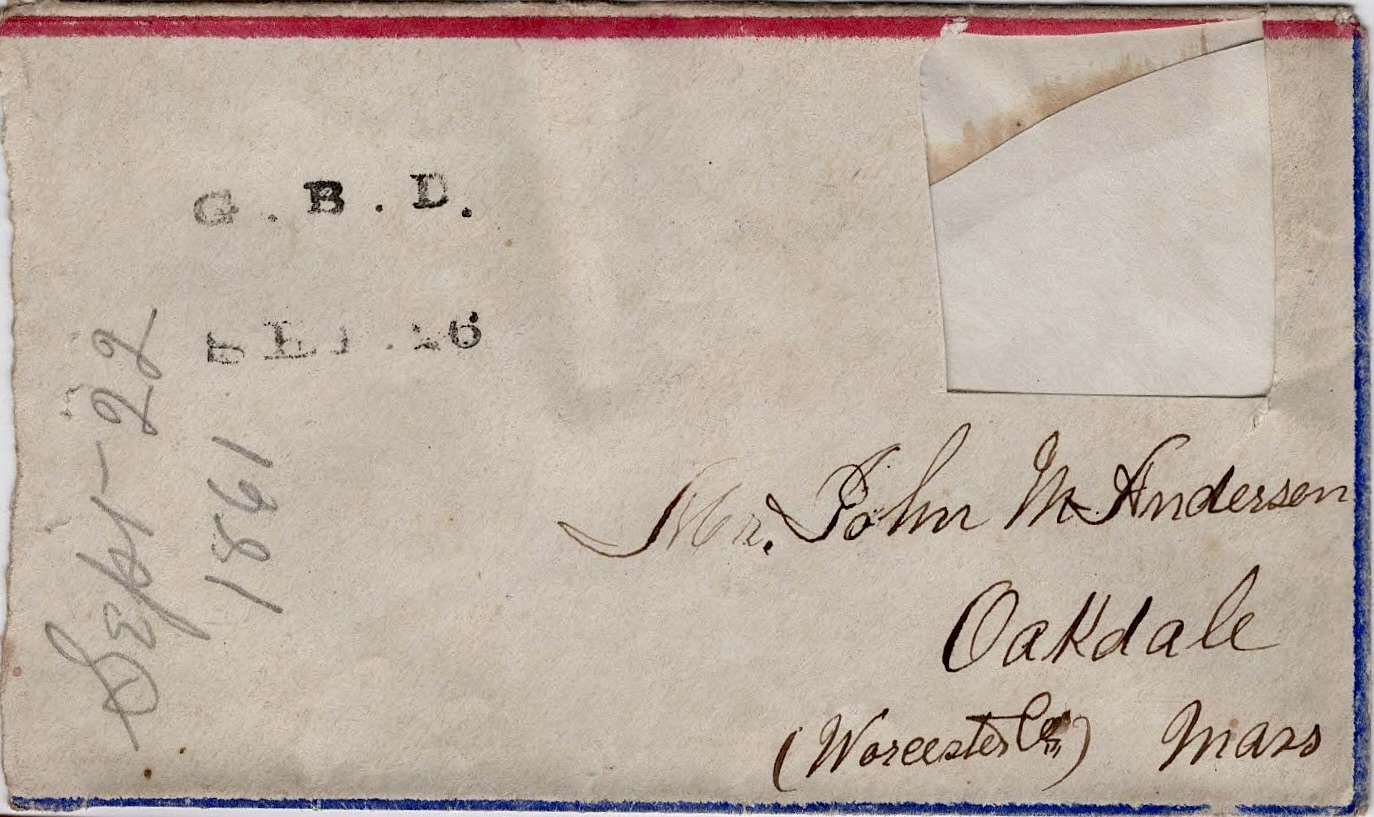 G. B. D.
SEP. 26
Sept - 22
1861
Mr. John M Anderson
Oakdale
(Worcester Co) Mass